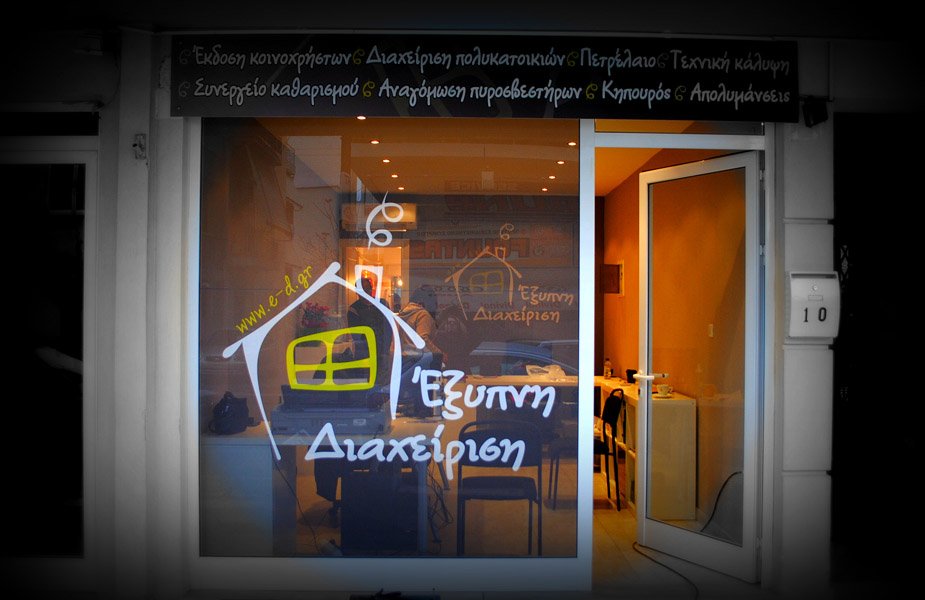 Έκδοση κοινοχρήστων Διαχείριση πολυκατοικιών Πετρέλαιο Τεχνική κάλυψη
Συνεργείο καθαρισμού Αναγόμωση πυροσβεστήρων Κηπουρός Απολυμάνσεις
www.e-d.gr
Έξυπνη
Διαχείριση
Έξυπνη
Διαχείριση
10